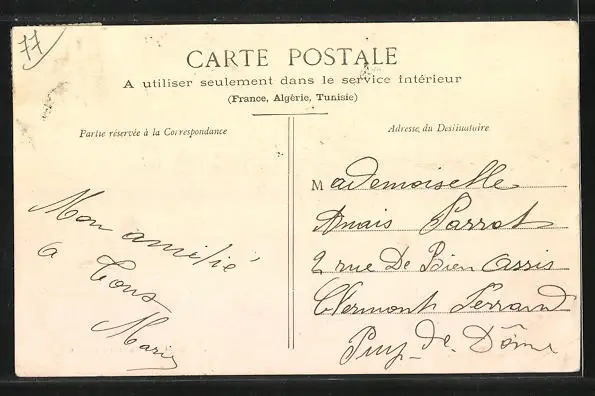 77
CARTE POSTALE
A utiliser seulement dans le service intérieur
(France, Algérie, Tunisie)
Partie réservée à la Correspondance
Mon amitié
a Tous
Marie
Adresse du Destinataire
Mademoiselle
Anais Parrot
2 rue De Bien Assis
Clermont Ferrand
Puy-de-Dôme